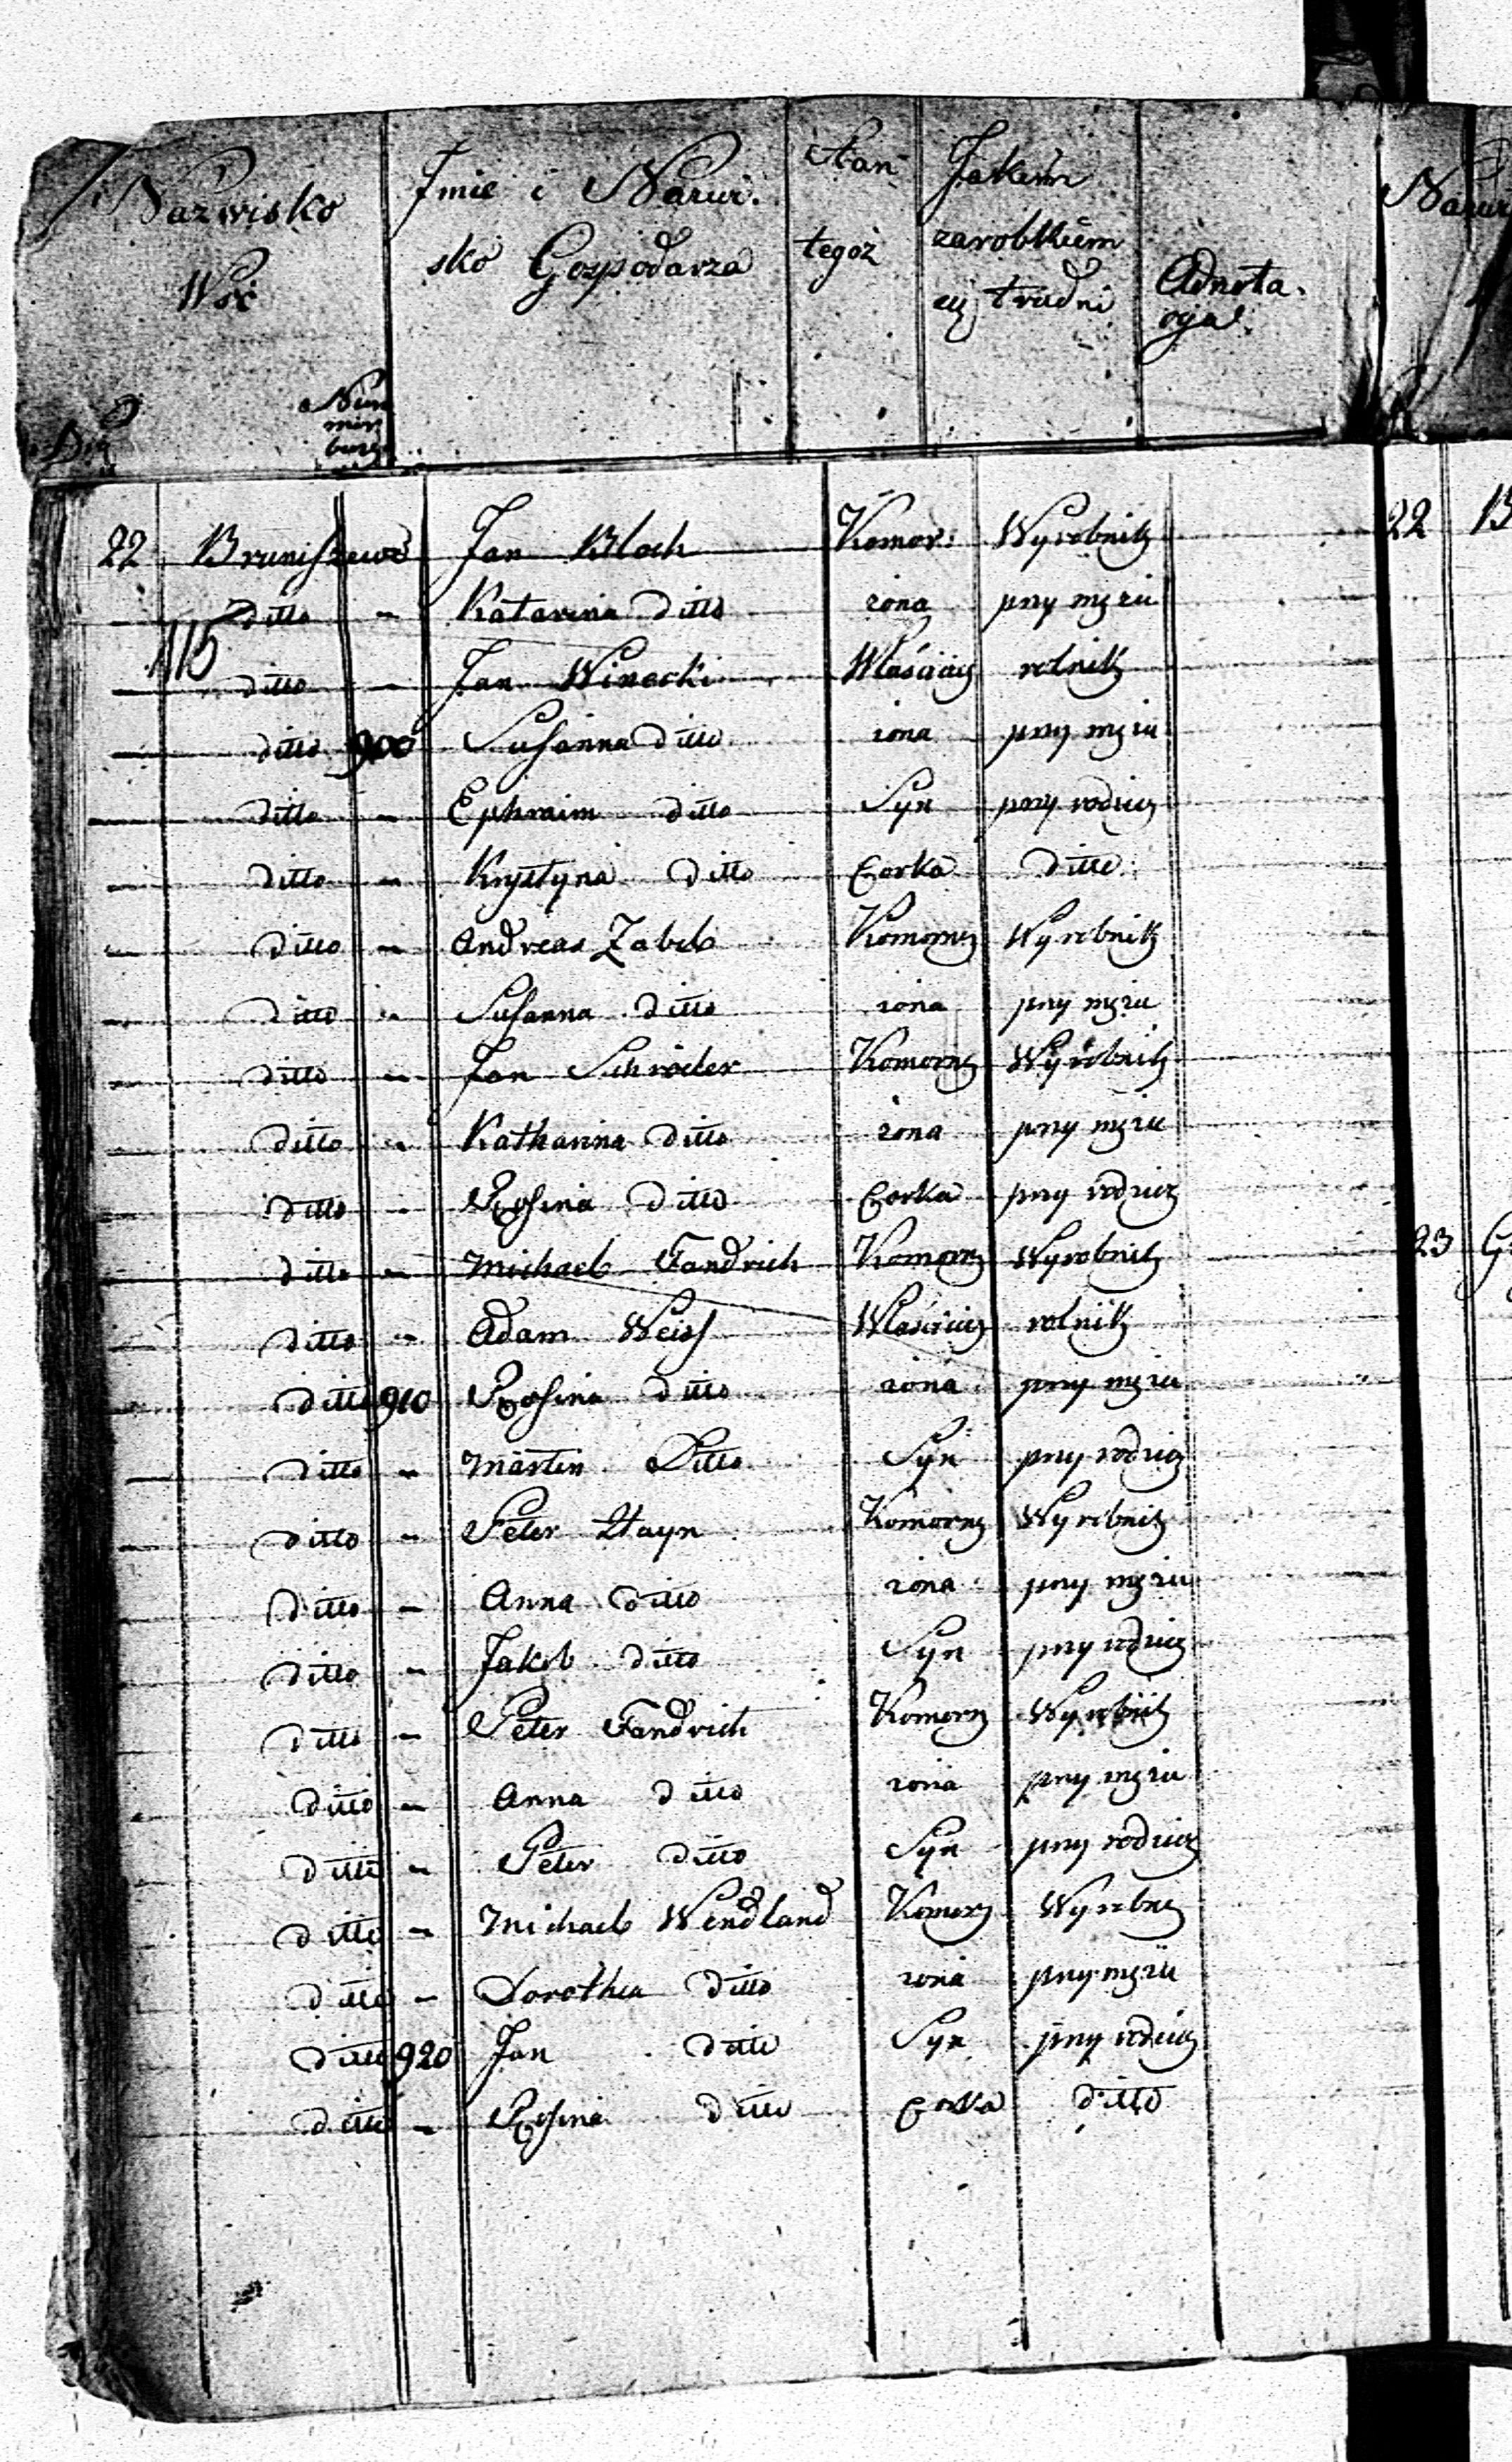 Nazwisko Wsi
Num
mer
Imie i Nazwi.
sko Gospodarza
Stan
tegoż
Jakiem
zarobkiem
się trudni
Adnota.
cya.
22 Bruniszewo Jan Bloch Komor: Wyrobnik
ditto " Katarina ditto zona przy mężu
115
ditto - Jan Winecki Właściciel rolnik
ditto 900 Susanna ditto zona przy mężu
ditto " Ephraim ditto Syn przy rodzicz
ditto " Krystyna ditto Corka ditto
ditto " Andreas Zabel Komorny Wyrobnik
ditto " Susanna ditto zona przy mężu
ditto " Jan Schröder Komorny Wyrobnik
ditto " Katharina ditto zona przy mężu
ditto " Rosina ditto Corka przy rodzicz
ditto " Michael Fandrich Komorn Wyrobnik
ditto " Adam Weiss Właściciel rolnik
ditto 910 Rosina ditto zona przy mężu
ditto " Martin Ditto Syn przy rodzicz
ditto " Peter Komorny Wyrobnik
ditto - Anna ditto zona przy mężu
ditto " Jakob ditto Syn przy rodzicz
ditto - Peter Fandrich Komorn Wyrobnik
ditto " Anna ditto zona przy mężu
ditto " Peter ditto Syn przy rodzicz
ditto - Michael Wendland Komorn Wyrobni
ditto - Dorothea ditto zona przy mężu
ditto 920 Jan ditto Syn przy rodzicz
ditto - Rosina ditto Corka ditto
22 B
23 G